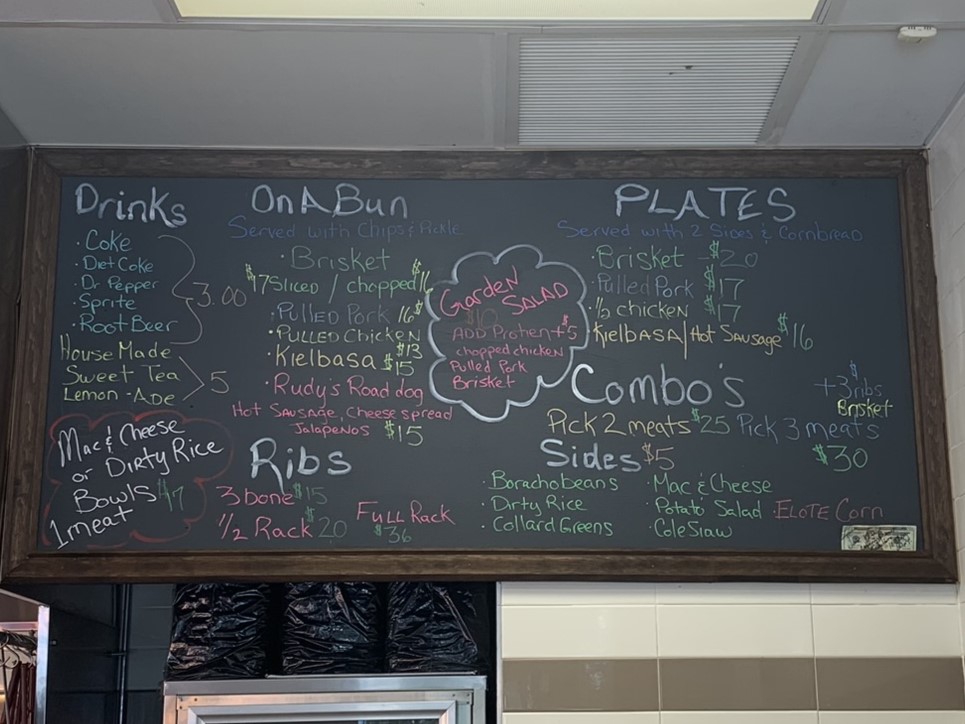 Drinks
· Coke
· Diet Coke
· Dr Pepper
· Sprite
· Root Beer
3.00
House Made
Sweet Tea
Lemon-Ade
5
Mac & Cheese
or Dirty Rice
Bowls $17
1 meat
On A Bun
Served with Chips & Pickle
· Brisket
$17 Sliced / chopped $16
· Pulled Pork 16$
· Pulled Chicken $13
· Kielbasa $15
· Rudy's Road dog
Hot Sausage, Cheese spread
Jalapeños $15
Ribs
3 bone $15
1/2 Rack $20
Full Rack
$36
Garden
Salad
$10
ADD Protien +$5
chopped chicken
Pulled Pork
Brisket
PLATES
Served with 2 Sides & Cornbread
· Brisket $20
· Pulled Pork $17
· 1/2 chicken $17
Kielbasa/Hot Sausage $16
Combo's
+ $3 ribs
Brisket
Pick 2 meats $25 Pick 3 meats
$30
Sides $5
· Boracho beans
· Dirty Rice
· Collard Greens
· Mac & Cheese
· Potato Salad
· Cole Slaw
· Elote Corn